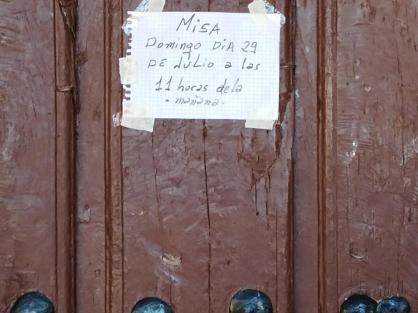 MISA
DOMINGO DÍA 29
DE JULIO a las
11 horas dela
- mañana -